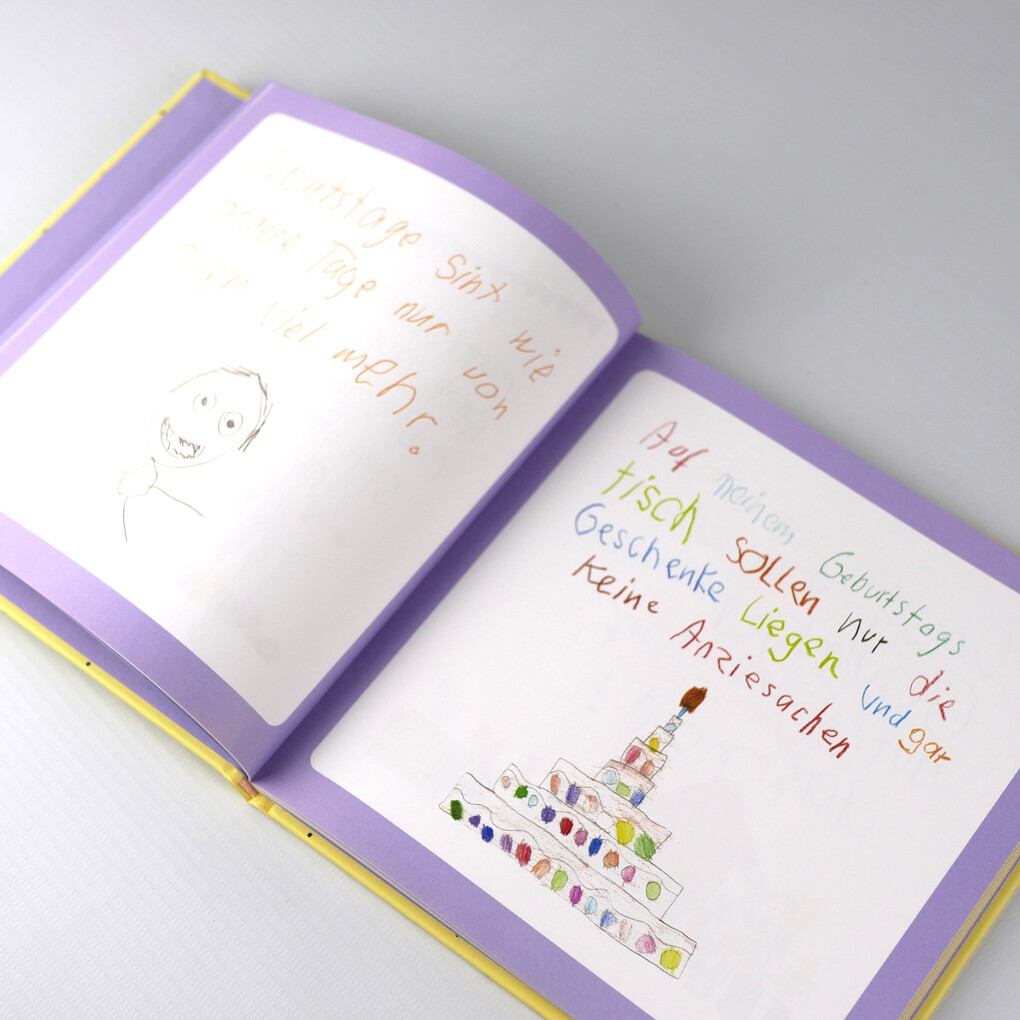 Geburtstage sint wie
andere Tage nur von
viel mehr.
Auf meinem Geburtstags
tisch sollen nur die
Geschenke Liegen und gar
Keine Anziesachen